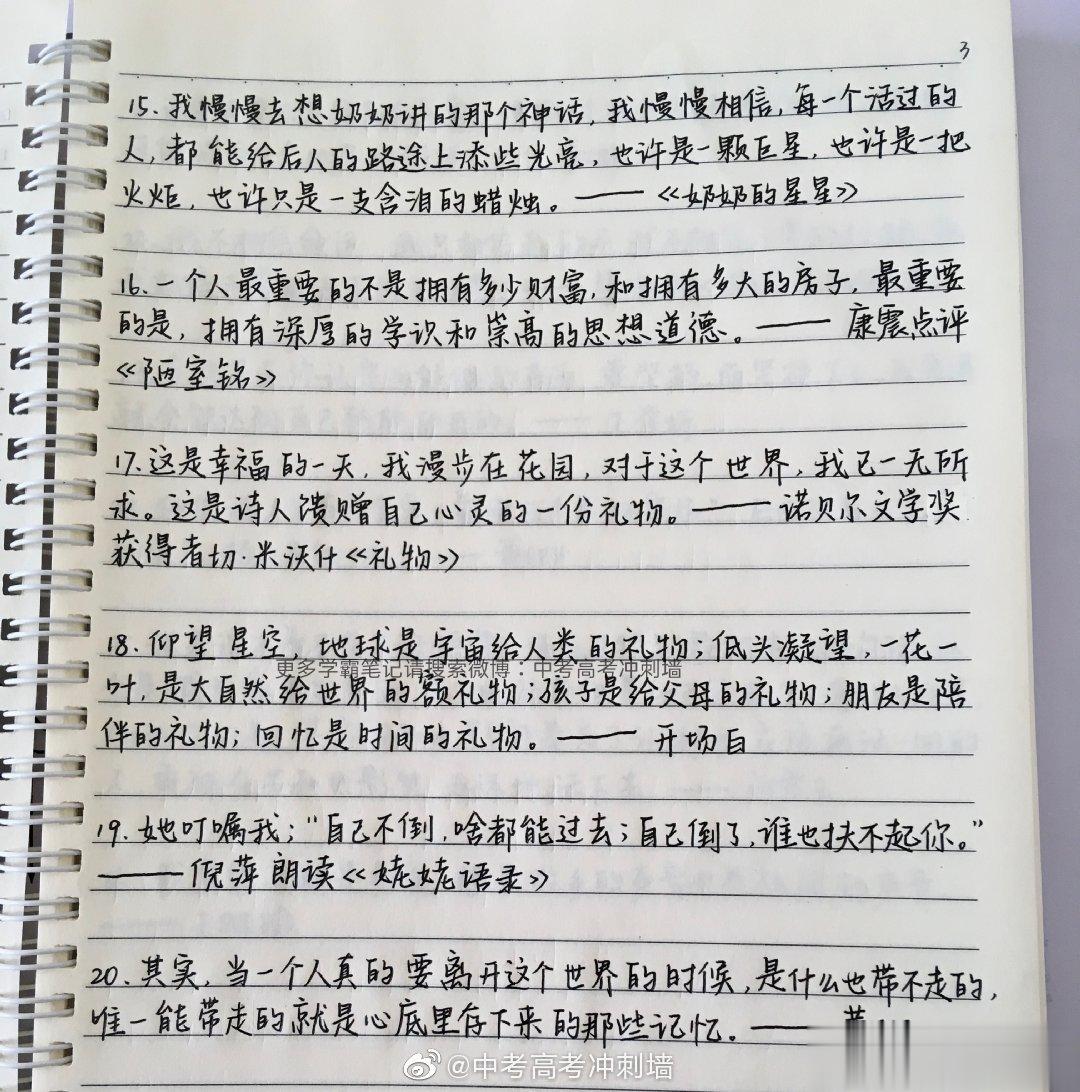 3
15. 我慢慢去想奶奶讲的那个神话，我慢慢相信，每一个活过的
人，都能给后人的路途上添些光亮，也许是一颗巨星，也许是一把
火炬，也许只是一支含泪的蜡烛。——《奶奶的星星》
16. 一个人最重要的不是拥有多少财富，和拥有多大的房子，最重要
的是，拥有深厚的学识和崇高的思想道德。——康震点评
《陋室铭》
17. 这是幸福的一天，我漫步在花园，对于这个世界，我已一无所
求。这是诗人馈赠自己心灵的一份礼物。——诺贝尔文学奖
获得者切·米沃什《礼物》
18. 仰望星空，地球是宇宙给人类的礼物；低头凝望，一花一
更多学霸笔记请搜索微博：中考高考冲刺墙
叶，是大自然给世界的额礼物；孩子是给父母的礼物；朋友是陪
伴的礼物；回忆是时间的礼物。——开场白
19. 她叮嘱我；“自己不倒，啥都能过去；自己倒了，谁也扶不起你。”
——倪萍 朗读《姥姥语录》
20. 其实，当一个人真的要离开这个世界的时候，是什么也带不走的，
唯一能带走的就是心底里存下来的那些记忆。——
@中考高考冲刺墙